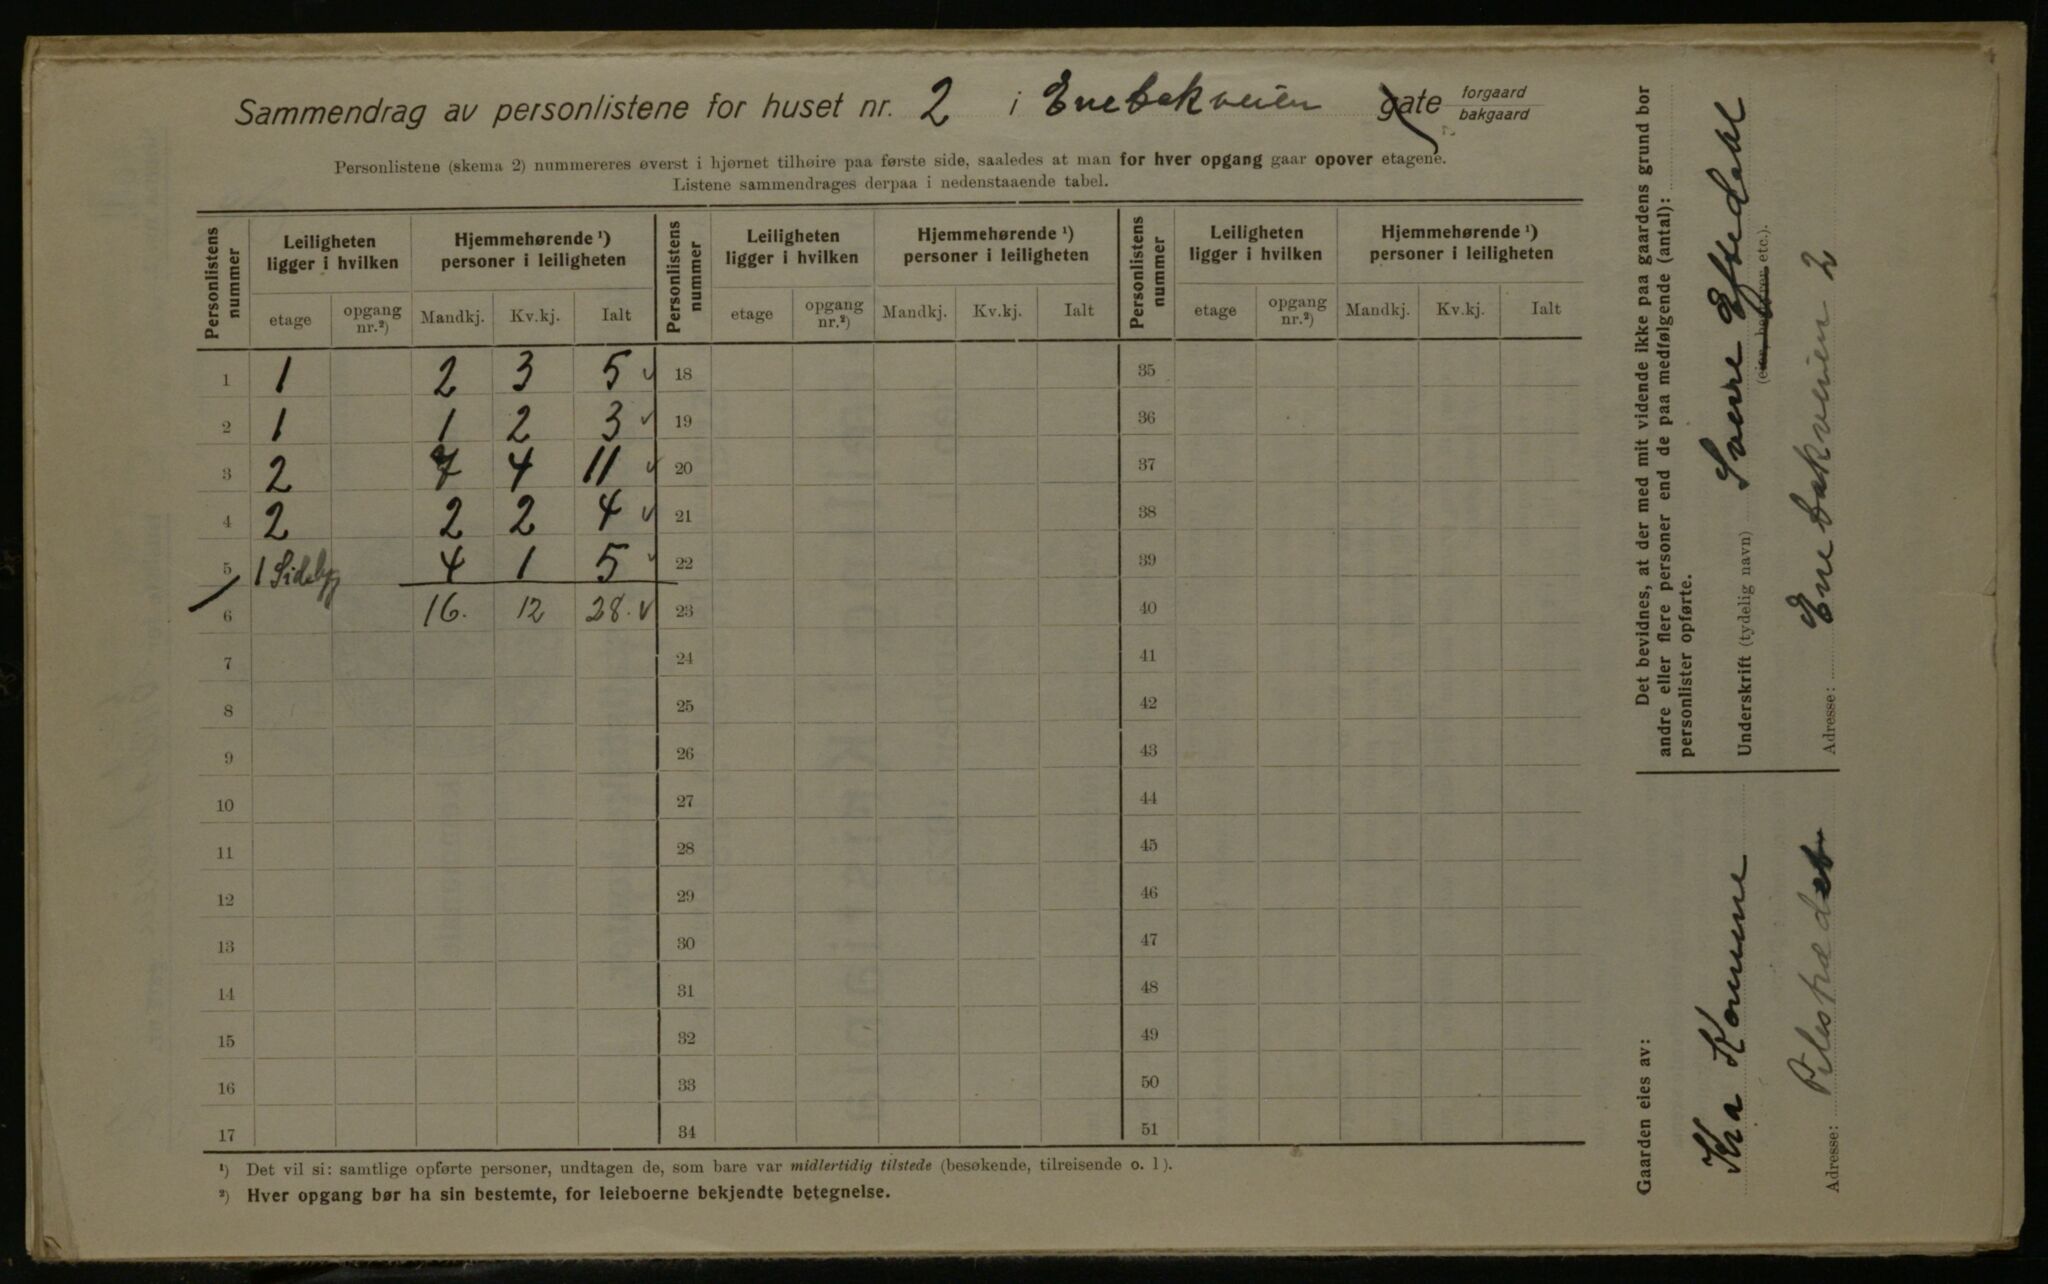 Sammendrag av personlistene for huset nr. 2 i Enebakveien gate forgaard bakgaard
Personlistene (skema 2) nummereres øverst i hjørnet tilhøire paa første side, saaledes at man for hver opgang gaar opover etagene.
Listene sammendrages derpaa i nedenstaaende tabel.
Personlistens nummer | Leiligheten ligger i hvilken | Hjemmehørende ¹) personer i leiligheten | Personlistens nummer | Leiligheten ligger i hvilken | Hjemmehørende ¹) personer i leiligheten | Personlistens nummer | Leiligheten ligger i hvilken | Hjemmehørende ¹) personer i leiligheten
etage | opgang nr.²) | Mandkj. | Kv.kj. | Ialt | etage | opgang nr.²) | Mandkj. | Kv.kj. | Ialt | etage | opgang nr.²) | Mandkj. | Kv.kj. | Ialt
1 1 2 3 5 ✓ 18 35
2 1 1 2 3 ✓ 19 36
3 2 7 4 11 ✓ 20 37
4 2 2 2 4 ✓ 21 38
5 1 Sidebyg 4 1 5 ✓ 22 39
6 16. 12 28. ✓ 23 40
7 24 41
8 25 42
9 26 43
10 27 44
11 28 45
12 29 46
13 30 47
14 31 48
15 32 49
16 33 50
17 34 51
¹) Det vil si: samtlige opførte personer, undtagen de, som bare var midlertidig tilstede (besøkende, tilreisende o. l).
²) Hver opgang bør ha sin bestemte, for leieboerne bekjendte betegnelse.
Det bevidnes, at der med mit vidende ikke paa gaardens grund bor
andre eller flere personer end de paa medfølgende (antal):
personlister opførte.
Underskrift (tydelig navn) Sverre Eftedahl
(eier, bestyrer etc.).
Adresse: Enebakveien 2
Gaarden eies av:
Kra Komune
Adresse: Pilestrædet